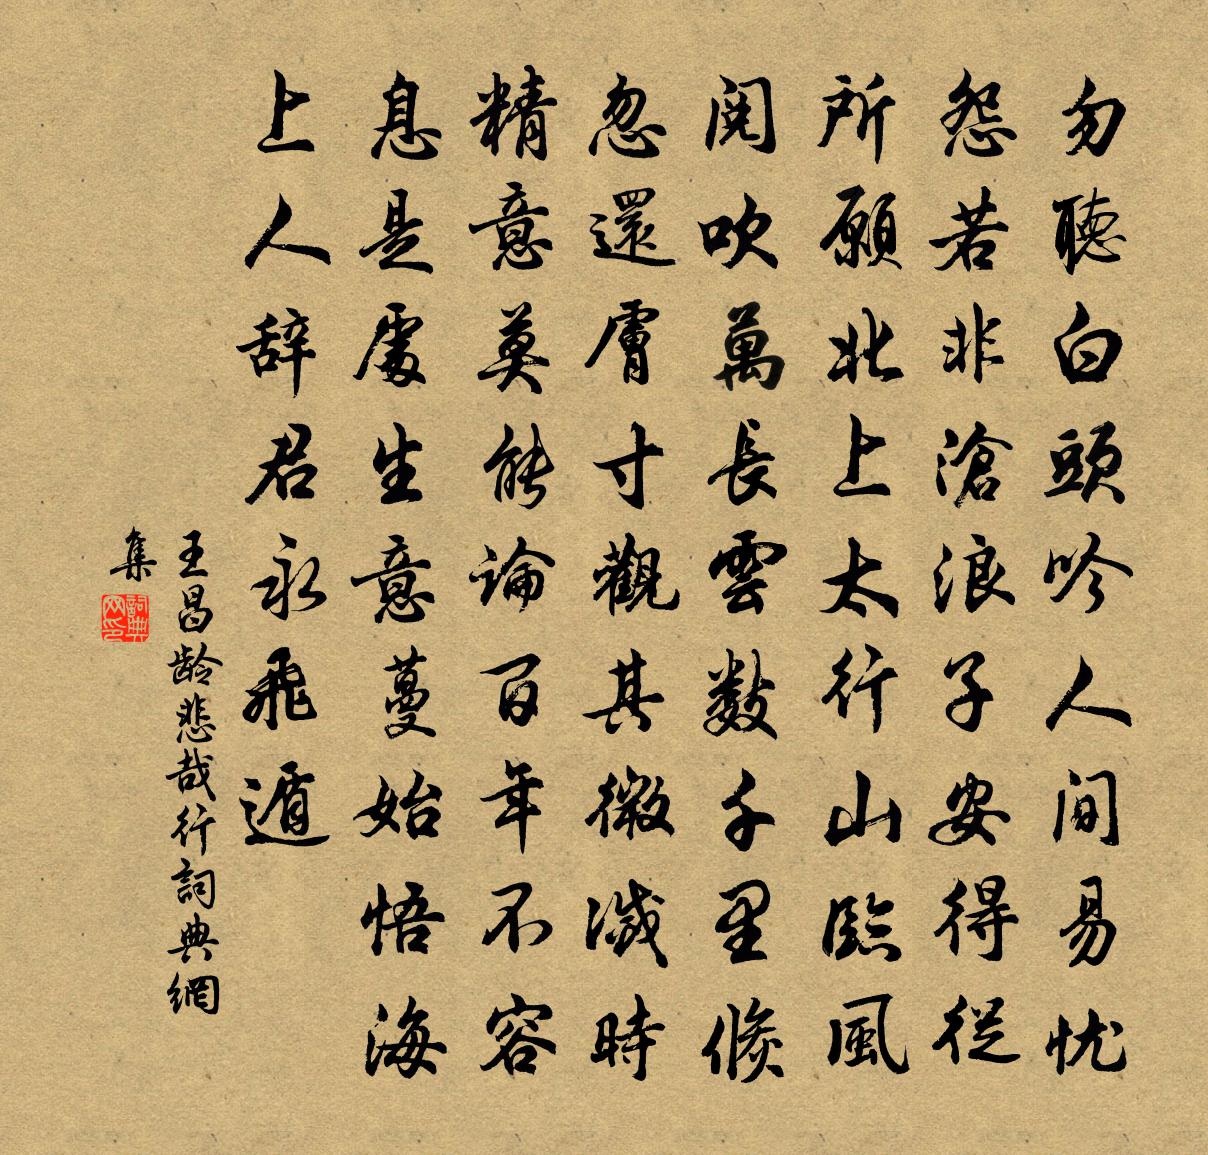 勿聽白頭吟人間易忧
怨若非滄浪子安得從
所願北上太行山臨風
閱吹萬長雲數千里倏
忽還膚寸觀其微滅時
精意莫能論百年不容
息是處生意蔓始悟海
上人辞君永飛遁
王昌龄悲哉行詞典網
集
詞典网印